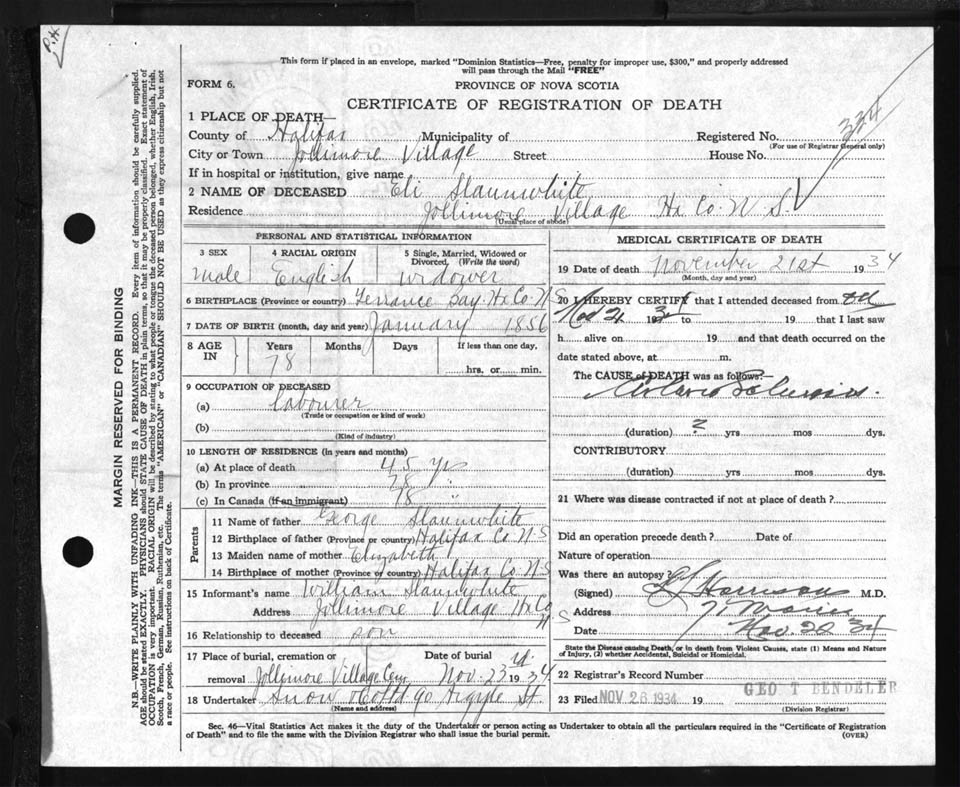 P.H.
This form if placed in an envelope, marked "Dominion Statistics—Free, penalty for improper use, $300," and properly addressed
will pass through the Mail "FREE"
FORM 6.
PROVINCE OF NOVA SCOTIA
CERTIFICATE OF REGISTRATION OF DEATH
1 PLACE OF DEATH—
County of Halifax Municipality of Registered No. 334
(For use of Registrar General only)
City or Town Jollimore Village Street House No.
If in hospital or institution, give name
2 NAME OF DECEASED Eli Slaunwhite
Residence Jollimore Village Hx Co. N.S.
(Usual place of abode)
PERSONAL AND STATISTICAL INFORMATION
3 SEX 4 RACIAL ORIGIN 5 Single, Married, Widowed or Divorced, (Write the word)
male English widower
6 BIRTHPLACE (Province or country) Terrance Bay. Hx Co. N S
7 DATE OF BIRTH (month, day and year) January 1856
8 AGE IN Years Months Days If less than one day,
78 hrs. or min.
9 OCCUPATION OF DECEASED
(a) labourer
(Trade or occupation or kind of work)
(b)
(Kind of industry)
10 LENGTH OF RESIDENCE (in years and months)
(a) At place of death 45 yrs
(b) In province 78 "
(c) In Canada (if an immigrant) 78 "
Parents
11 Name of father George Slaunwhite
12 Birthplace of father (Province or country) Halifax Co N.S
13 Maiden name of mother Elizabeth
14 Birthplace of mother (Province or country) Halifax Co N.S
15 Informant's name William Slaunwhite
Address Jollimore Village Hx Co N S
16 Relationship to deceased son
17 Place of burial, cremation or removal Jollimore Village Cem Date of burial Nov. 23 1934
18 Undertaker Snow & Co Ltd 90 Argyle St.
(Name and address)
MEDICAL CERTIFICATE OF DEATH
19 Date of death November 21st 1934
(Month, day and year)
20 I HEREBY CERTIFY that I attended deceased from
Nov 21 1934 to 19 that I last saw
h alive on 19 and that death occurred on the
date stated above, at m.
The CAUSE of DEATH was as follows:—
(duration) ? yrs mos dys.
CONTRIBUTORY
(duration) yrs mos dys.
21 Where was disease contracted if not at place of death?
Did an operation precede death? Date of
Nature of operation
Was there an autopsy?
(Signed) Harrison M.D.
Address
Date Nov. 22 34
State the Disease causing Death, or in death from Violent Causes, state (1) Means and Nature
of Injury, (2) whether Accidental, Suicidal or Homicidal.
22 Registrar's Record Number
23 Filed NOV 26 1934 19 GEO T BENDELER
(Division Registrar)
Sec. 46—Vital Statistics Act makes it the duty of the Undertaker or person acting as Undertaker to obtain all the particulars required in the "Certificate of Registration
of Death" and to file the same with the Division Registrar who shall issue the burial permit.
(OVER)
MARGIN RESERVED FOR BINDING
N.B.—WRITE PLAINLY WITH UNFADING INK—THIS IS A PERMANENT RECORD. Every item of information should be carefully supplied.
AGE should be stated EXACTLY. PHYSICIANS should STATE CAUSE OF DEATH in plain terms, so that it may be properly classified. Exact statement of
OCCUPATION is very important. RACIAL ORIGIN will be described by stating to what people or tongue the deceased person belonged, whether English, Irish,
Scotch, French, German, Russian, Ruthenian, etc. The terms "AMERICAN" or "CANADIAN" SHOULD NOT BE USED as they express citizenship but not
a race or people. See instructions on back of Certificate.